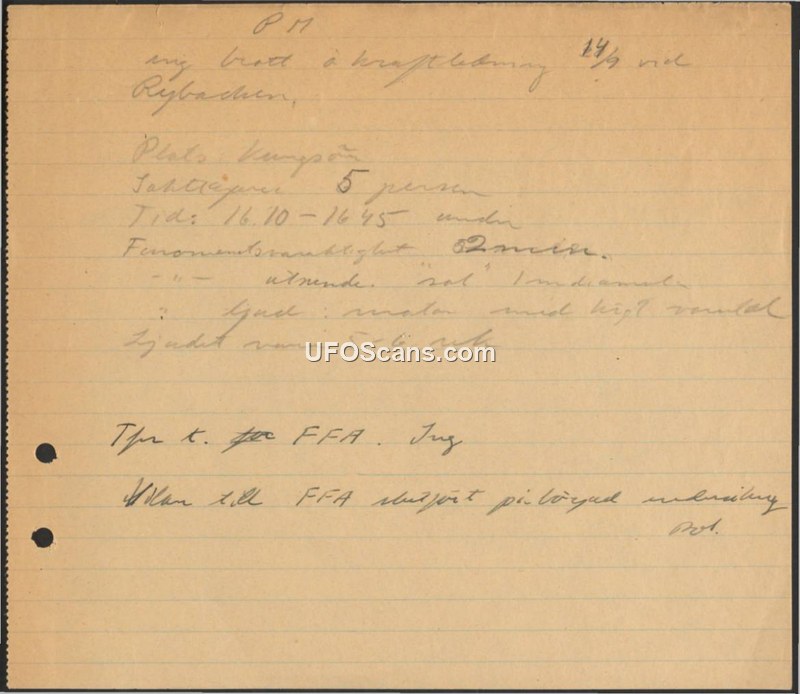 PM
ang brott å kraftledning 14/9 vid
Rybacken.
Plats: Kungsör
Iakttagare 5 person
Tid: 16.10 – 16.45 under
Fenomenets varaktighet 2 min.
-"- utseende. "sol" 1 m diameter
" ljud: motor med högt varvtal
Ljudet var
UFOScans.com
Tfn t. FFA. Ing
till FFA slutfört påbörjad undersökning